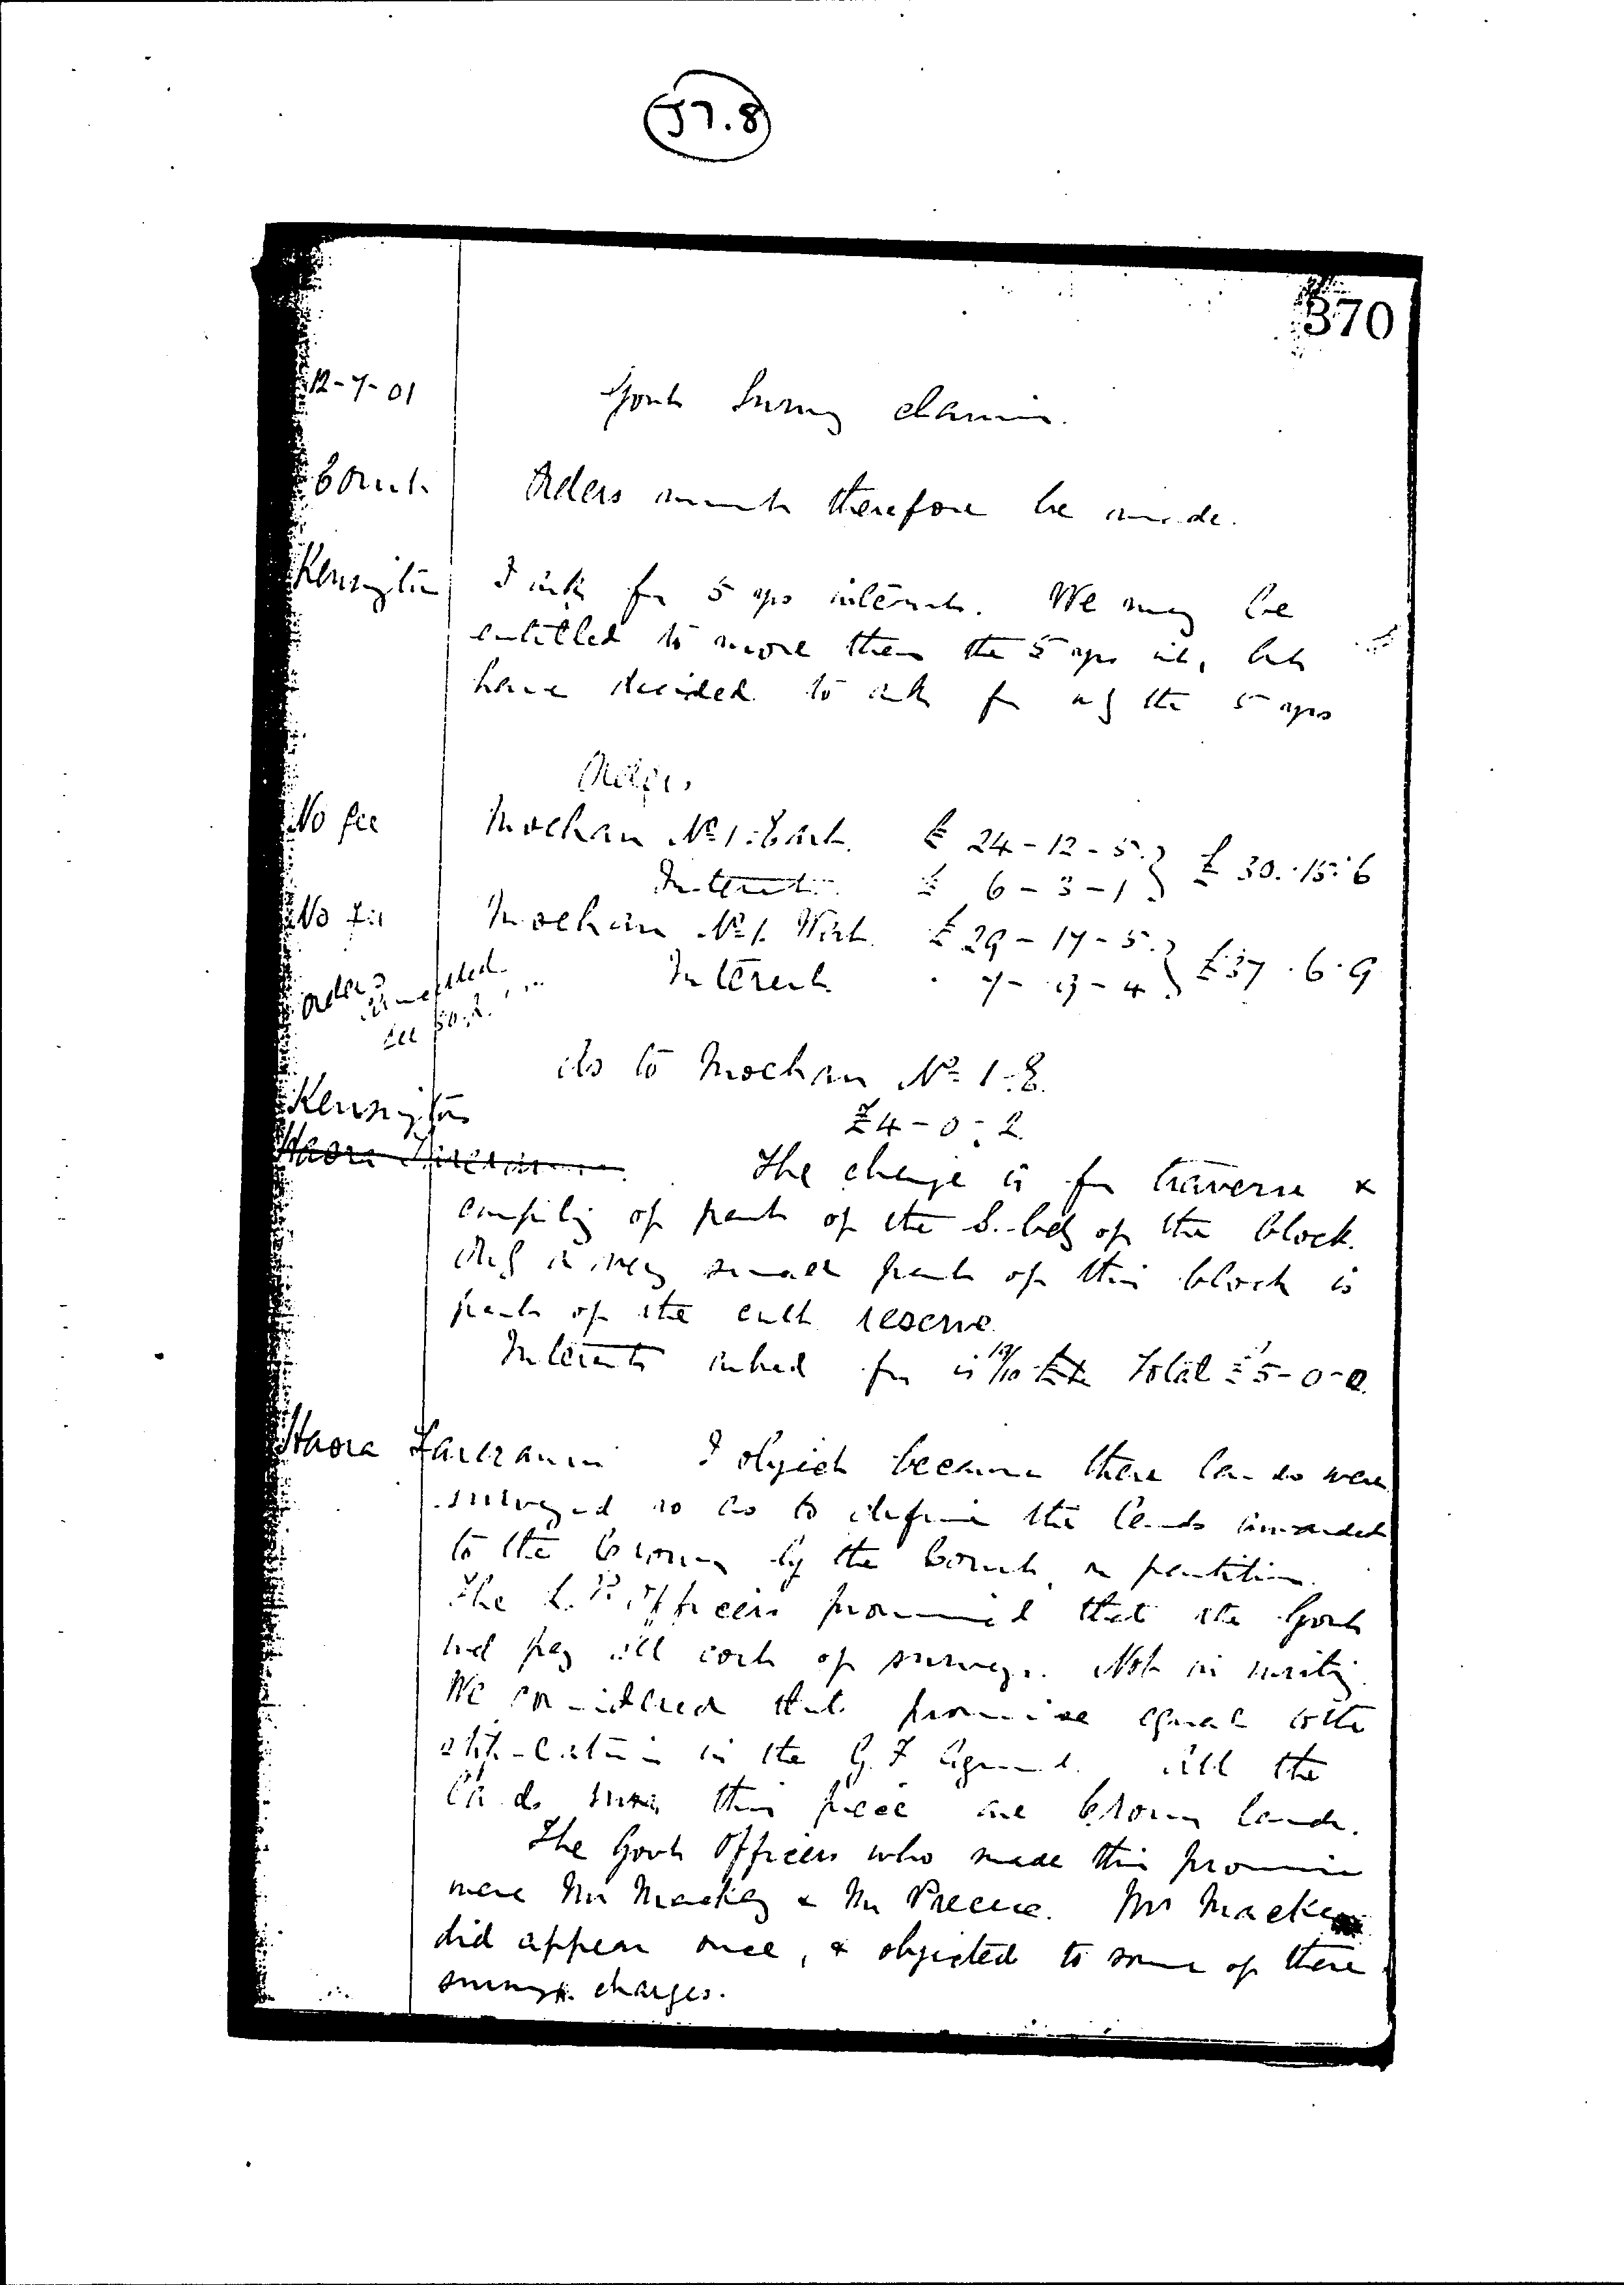 J7.8
370
12-7-01 Govt Survey claims.
Court Orders must therefore be made.
Kensington I ask for 5 yrs interest. We may be
entitled to more than the 5 yrs int, but
have decided to ask for only the 5 yrs
Orders
No fee Moehau No 1 East. £ 24-12-5 } £ 30.15.6
Interest £ 6-3-1
No fee Moehau No 1. West. £ 29-17-5 } £37.6.9
Interest 7-3-4
Orders
See
As to Moehau No 1.E.
Kensington £4-0-2
Haora Tareranui The charge is for traverse &
compiling of part of the S. bdy of the block.
Only a very small part of this block is
part of the cult reserve
Interest asked for is 19/10 Total £5-0-0
Haora Tareranui I object because these lands were
surveyed so as to define the lands awarded
to the Crown by the Court on partition.
The L.P. Officers promised that the Govt
wd pay all cost of surveys. Not in writing.
We considered that promise equal to the
in the G.F. Agmt. All the
lands surrg this piece are Crown lands.
The Govt Officers who made this promise
were Mr Mackay & Mr Preece. Mr Mackay
did appear once, & objected to some of these
survey charges.